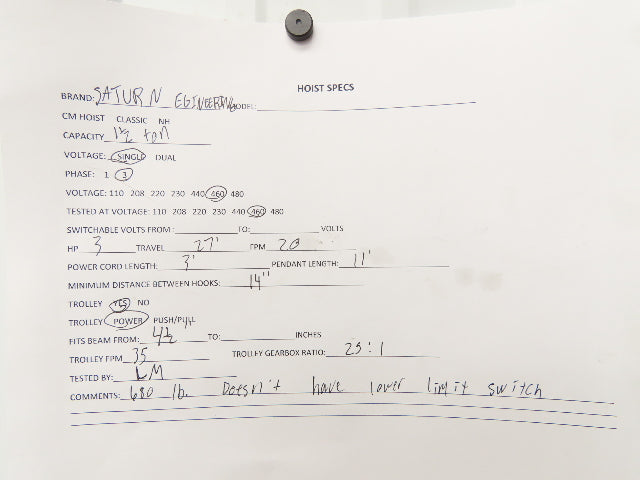 HOIST SPECS
BRAND: SATURN EGINEERING MODEL:
CM HOIST CLASSIC NH
CAPACITY 1 1/2 ton
VOLTAGE: SINGLE DUAL
PHASE: 1 3
VOLTAGE: 110 208 220 230 440 460 480
TESTED AT VOLTAGE: 110 208 220 230 440 460 480
SWITCHABLE VOLTS FROM: TO: VOLTS
HP 3 TRAVEL 27' FPM 20
POWER CORD LENGTH: 3' PENDANT LENGTH: 11'
MINIMUM DISTANCE BETWEEN HOOKS: 14"
TROLLEY YES NO
TROLLEY POWER PUSH/PULL
FITS BEAM FROM: 4 1/2 TO: INCHES
TROLLEY FPM 35 TROLLEY GEARBOX RATIO: 25:1
TESTED BY: LM
COMMENTS: 680 lb. Doesn't have lower limit switch